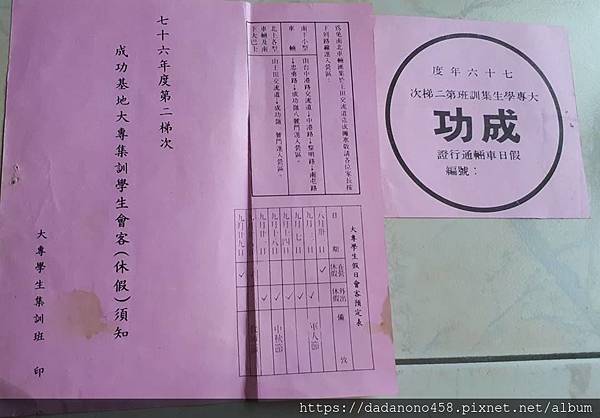 七十六年度第二梯次
成功基地大專集訓學生會客(休假)須知
大專學生集訓班 印
為免南北車輛匯集於王田交流道造成擁塞敬請各位家長按
下列路線進入營區:
南下小型
車輛
由台中港路交流道→中港路→黎明路→南屯路
→忠勇路→成功嶺八號門進入營區。
北上各型
車輛及南
下大巴士
由王田交流道→成功嶺 號門進入營區。
大專學生假日會客預定表
日期 在營休假 外出休假 備攷
八月卅 日 ✓
軍人節
九月七日 ✓
九月十四日 ✓
九月十八日 ✓ 中秋節
九月廿 日 ✓
九月廿九日 ✓
七十六年度
大專學生集訓班第二梯次
成功
假日車輛通行證
編號:
https://dadanono458.pixnet.net/album